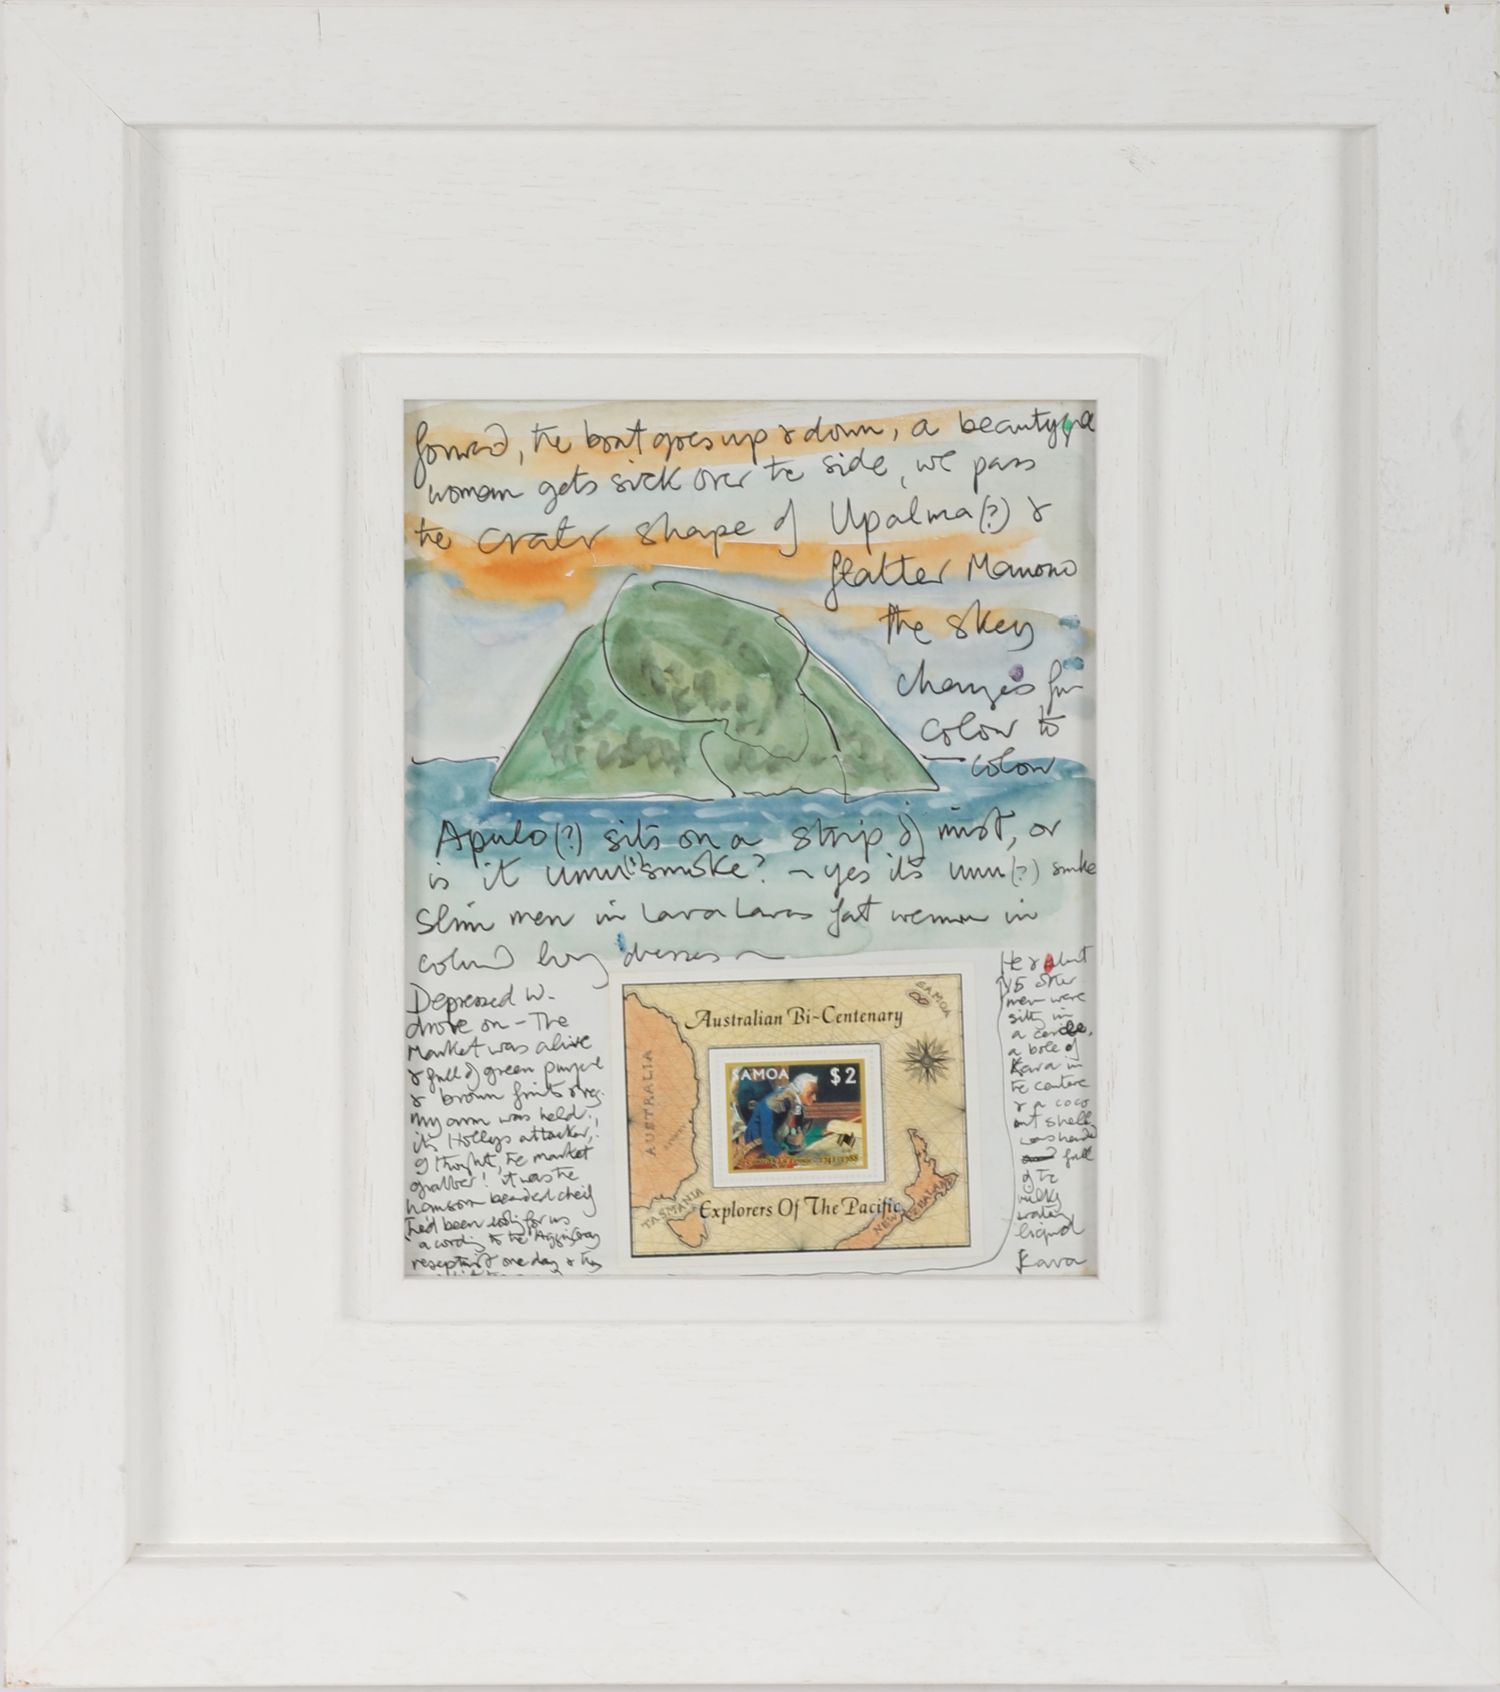 forward, the boat goes up & down, a beautiful
woman gets sick over the side, we pass
the crater shape of Upalma(?) &
flatter Manono
the skey
changes from
colour to
colour
Apulo(?) sits on a strip of mist, or
is it umu(?) smoke? ~ yes it's umu(?) smoke
Slim men in Lava Lavas fat women in
coloured long dresses ~
Depressed W.
drove on - The
Market was alive
& full of green purple
& brown fruits & veg.
my arm was held,
it's Hollys attacker,
I thought, the market
grabber! it was the
hansom bearded cheif
he'd been looking for us
acording to the Aggi Grey
reseptionist one day & they
Australian Bi-Centenary
SAMOA
AUSTRALIA
SAMOA $2
TASMANIA
Explorers Of The Pacific
NEW ZEALAND
He & about
15 other
men were
sitting in
a cercle,
a bole of
Kava in
the centere
& a coco
nut shell
was handed
full
of the
milky
watery
liquid
Kava